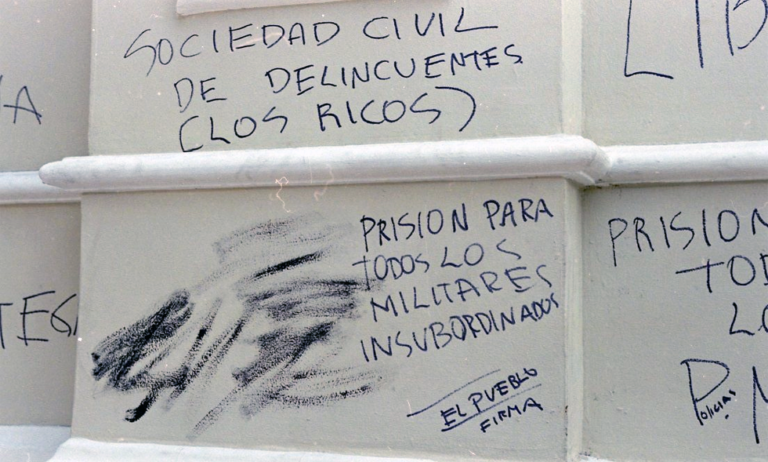 SOCIEDAD CIVIL
DE DELINCUENTES
(LOS RICOS)
PRISION PARA
TODOS LOS
MILITARES
INSUBORDINADOS
EL PUEBLO
FIRMA
PRISION
TOD
LO
Policias